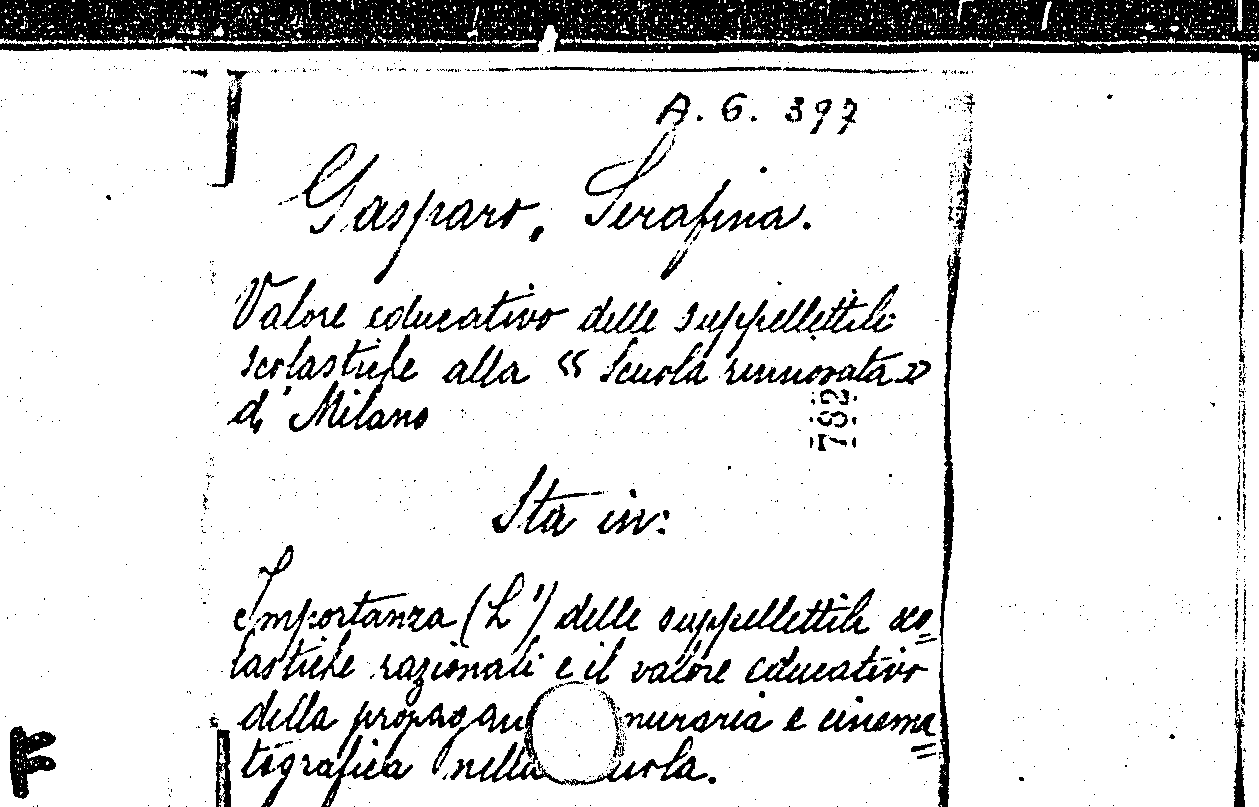 A. G. 397
Gasparo, Serafina.
Valore educativo delle suppellettili
scolastiche alla « Scuola rinnovata »
di Milano
782
Sta in:
Importanza (L') delle suppellettili sco=
lastiche razionali e il valore educativo
della propagan muraria e cinema=
tografica nella uola.
F